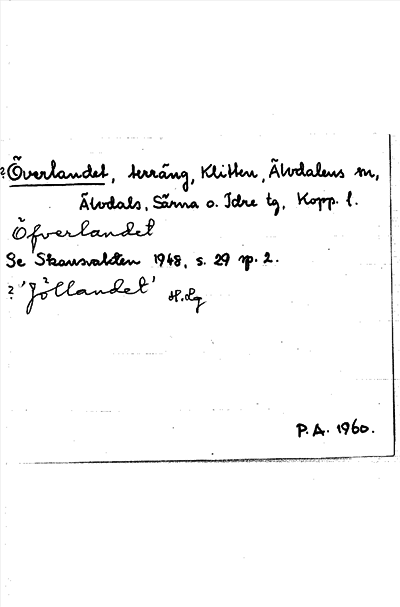 ? Överlandet, terräng, Klitten, Älvdalens sn,
Älvdals, Särna o. Idre tg, Kopp. l.
Öfverlandet
Se Skansvakten 1948, s. 29 sp. 2.
? 'Jöllandet' H.Lg
P.A. 1960.